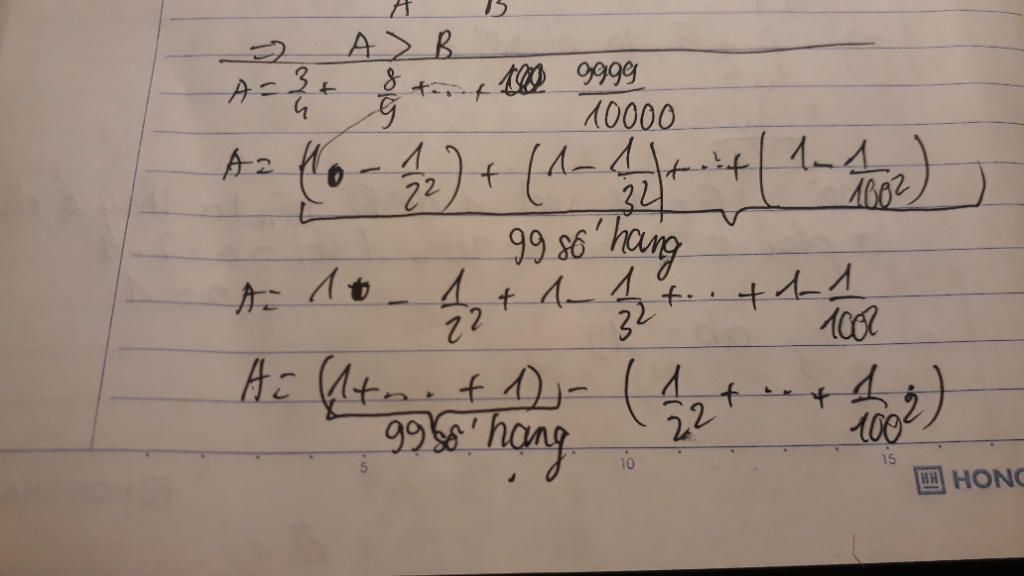 A B
⇒ A > B
A = 3/4 + 8/9 + ... + 9999/10000
A = (1 - 1/2²) + (1 - 1/3²) + ... + (1 - 1/100²)
99 số hang
A = 1 - 1/2² + 1 - 1/3² + ... + 1 - 1/100²
A = (1 + ... + 1) - (1/2² + ... + 1/100²)
99 số hang
5 10 15
HH HONG